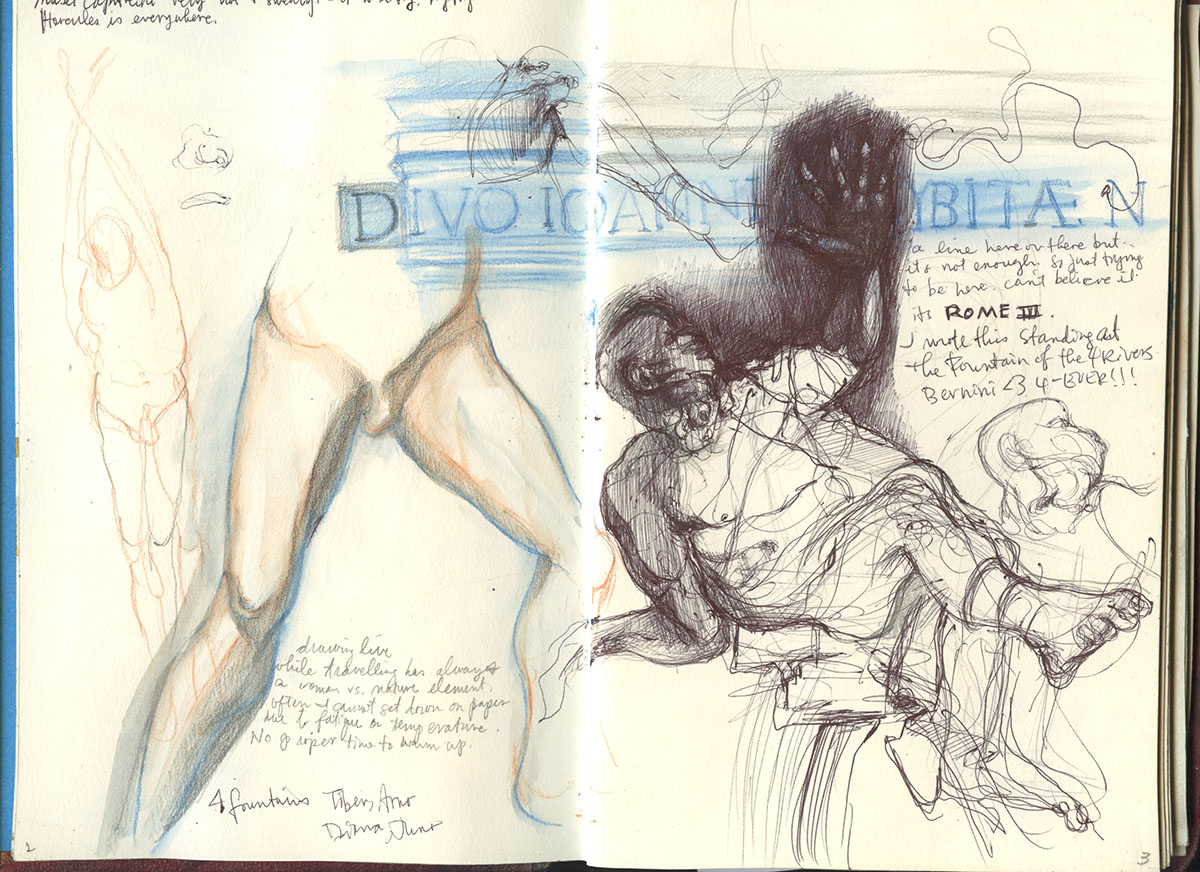 Hercules is everywhere.
DIVO IOANNI BITÆ N
a line here or there but..
its not enough. So just trying
to be here. can't believe it
its ROME III.
I wrote this standing at
the Fountain of the 4 Rivers
Bernini <3 4-EVER!!!
drawing live
while travelling has always
a woman vs. nature element.
often I cannot set down on paper
due to fatigue or temperature.
No proper time to warm up.
4 fountains Tibers Arno
Diana Juno
2
3